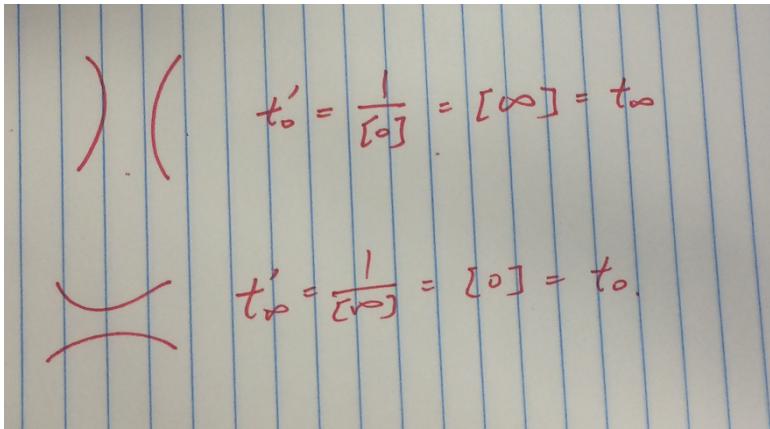 t₀' = 1/[0] = [∞] = t∞
t∞' = 1/[∞] = [0] = t₀.